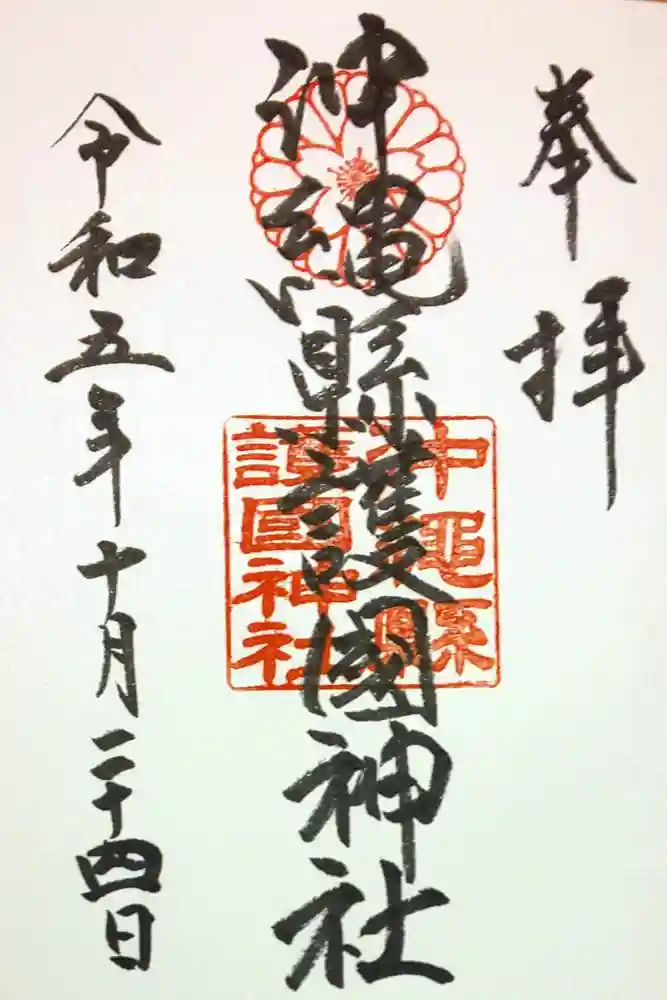 奉拝
沖縄縣護國神社
沖縄縣
護國神社
令和五年十月二十四日